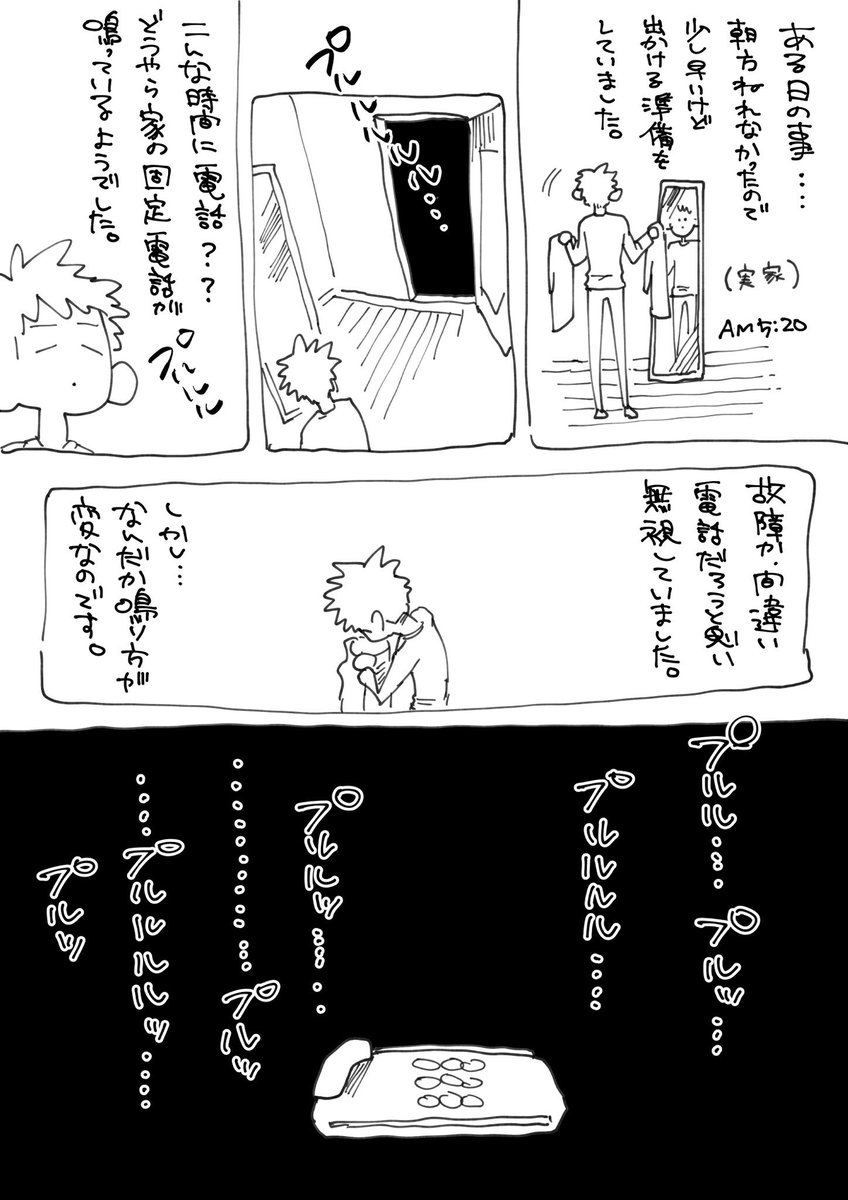 ある日の事‥‥
朝方ねれなかったので
少し早いけど
出かける準備を
していました。
(実家)
AM5:20
プルルルルル…
こんな時間に電話??
どうやら家の固定電話が
鳴っているようでした。
プルルルル
故障か、間違い
電話だろうと思い
無視していました。
しかし…
なんだか鳴り方が
変なのです。
プルル‥‥
プルッ‥‥
プルルルル‥‥
プルルッ‥‥‥
‥‥‥‥‥‥プルッ
‥‥プルルルルッ‥‥
プルッ